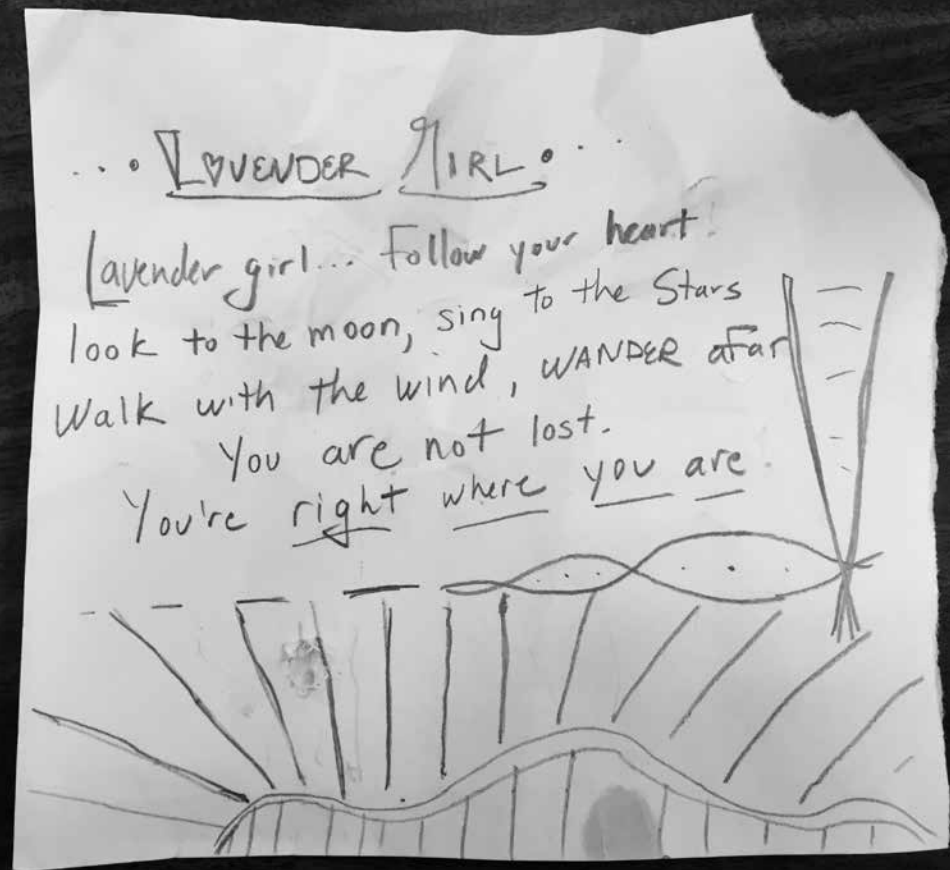 ... LOVENDER GIRL...
Lavender girl... Follow your heart!
look to the moon, sing to the Stars
Walk with the wind, WANDER aFar
You are not lost.
You're right where you are.